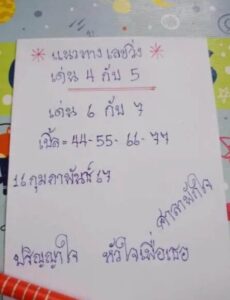 * แนวทางเลขวิ่ง *
เด่น 4 กับ 5
เด่น 6 กับ 7
เบิ้ล = 44-55-66-77
16 กุมภาพันธ์ 67
ศาลาพักใจ
ปริญญาใจ หัวใจเพื่อเธอ